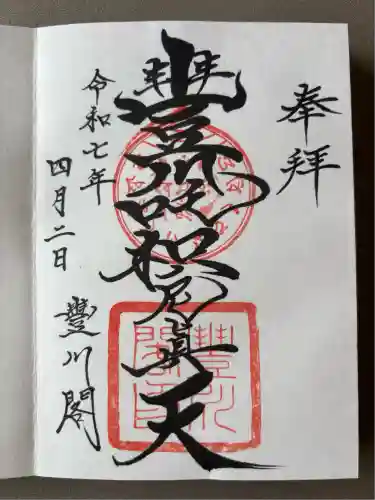 奉拝
豊川吒枳尼眞天
令和七年
四月二日
豐川閣